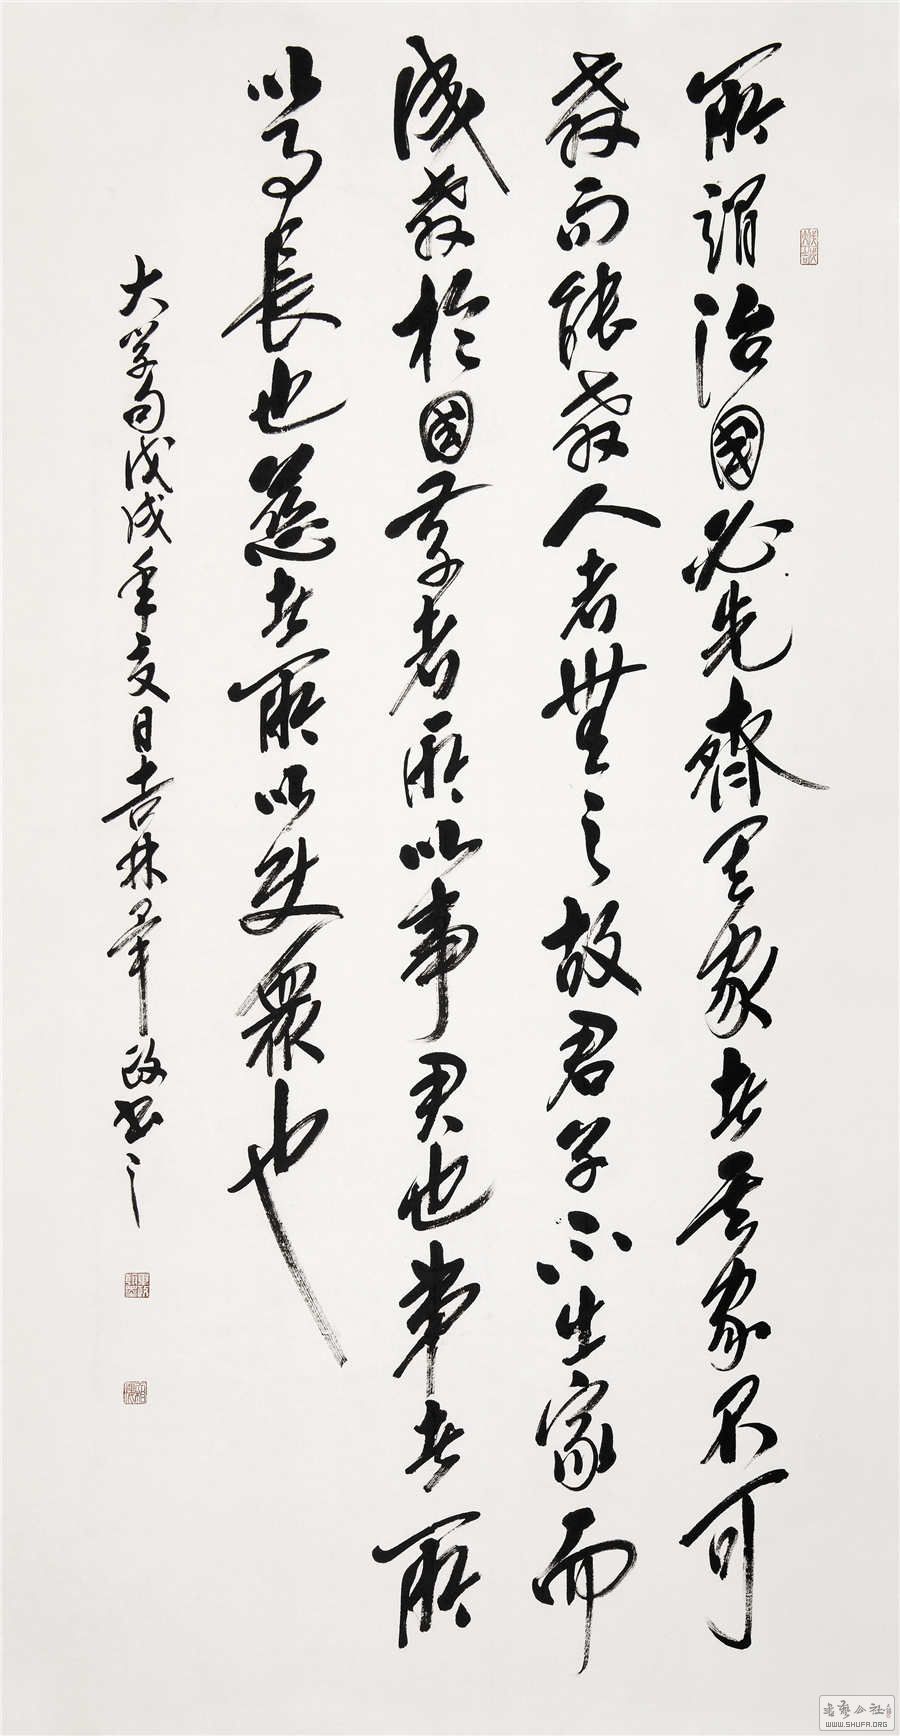 所謂治國必先齊其家者其家不可
教而能教人者無之故君子不出家而
成教於國孝者所以事君也弟者所
以事長也慈者所以使眾也
大学句戊戌年夏日吉林畢政書之
WWW.SHUFA.ORG